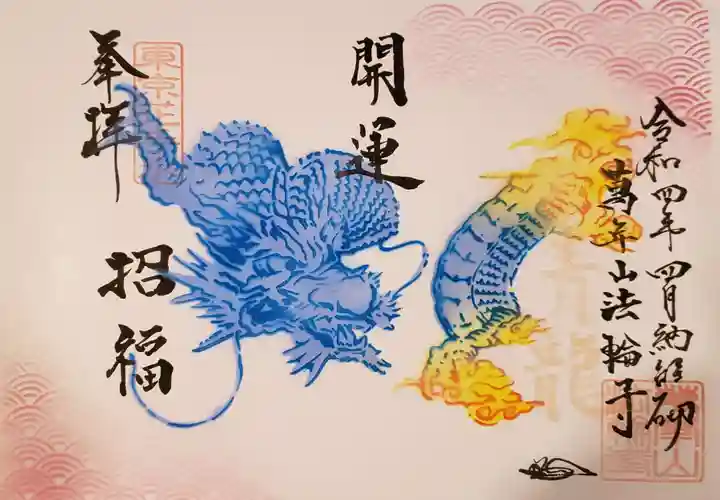 令和四年 四月 納経
萬年山法輪寺
開運
奉拝
招福
青龍